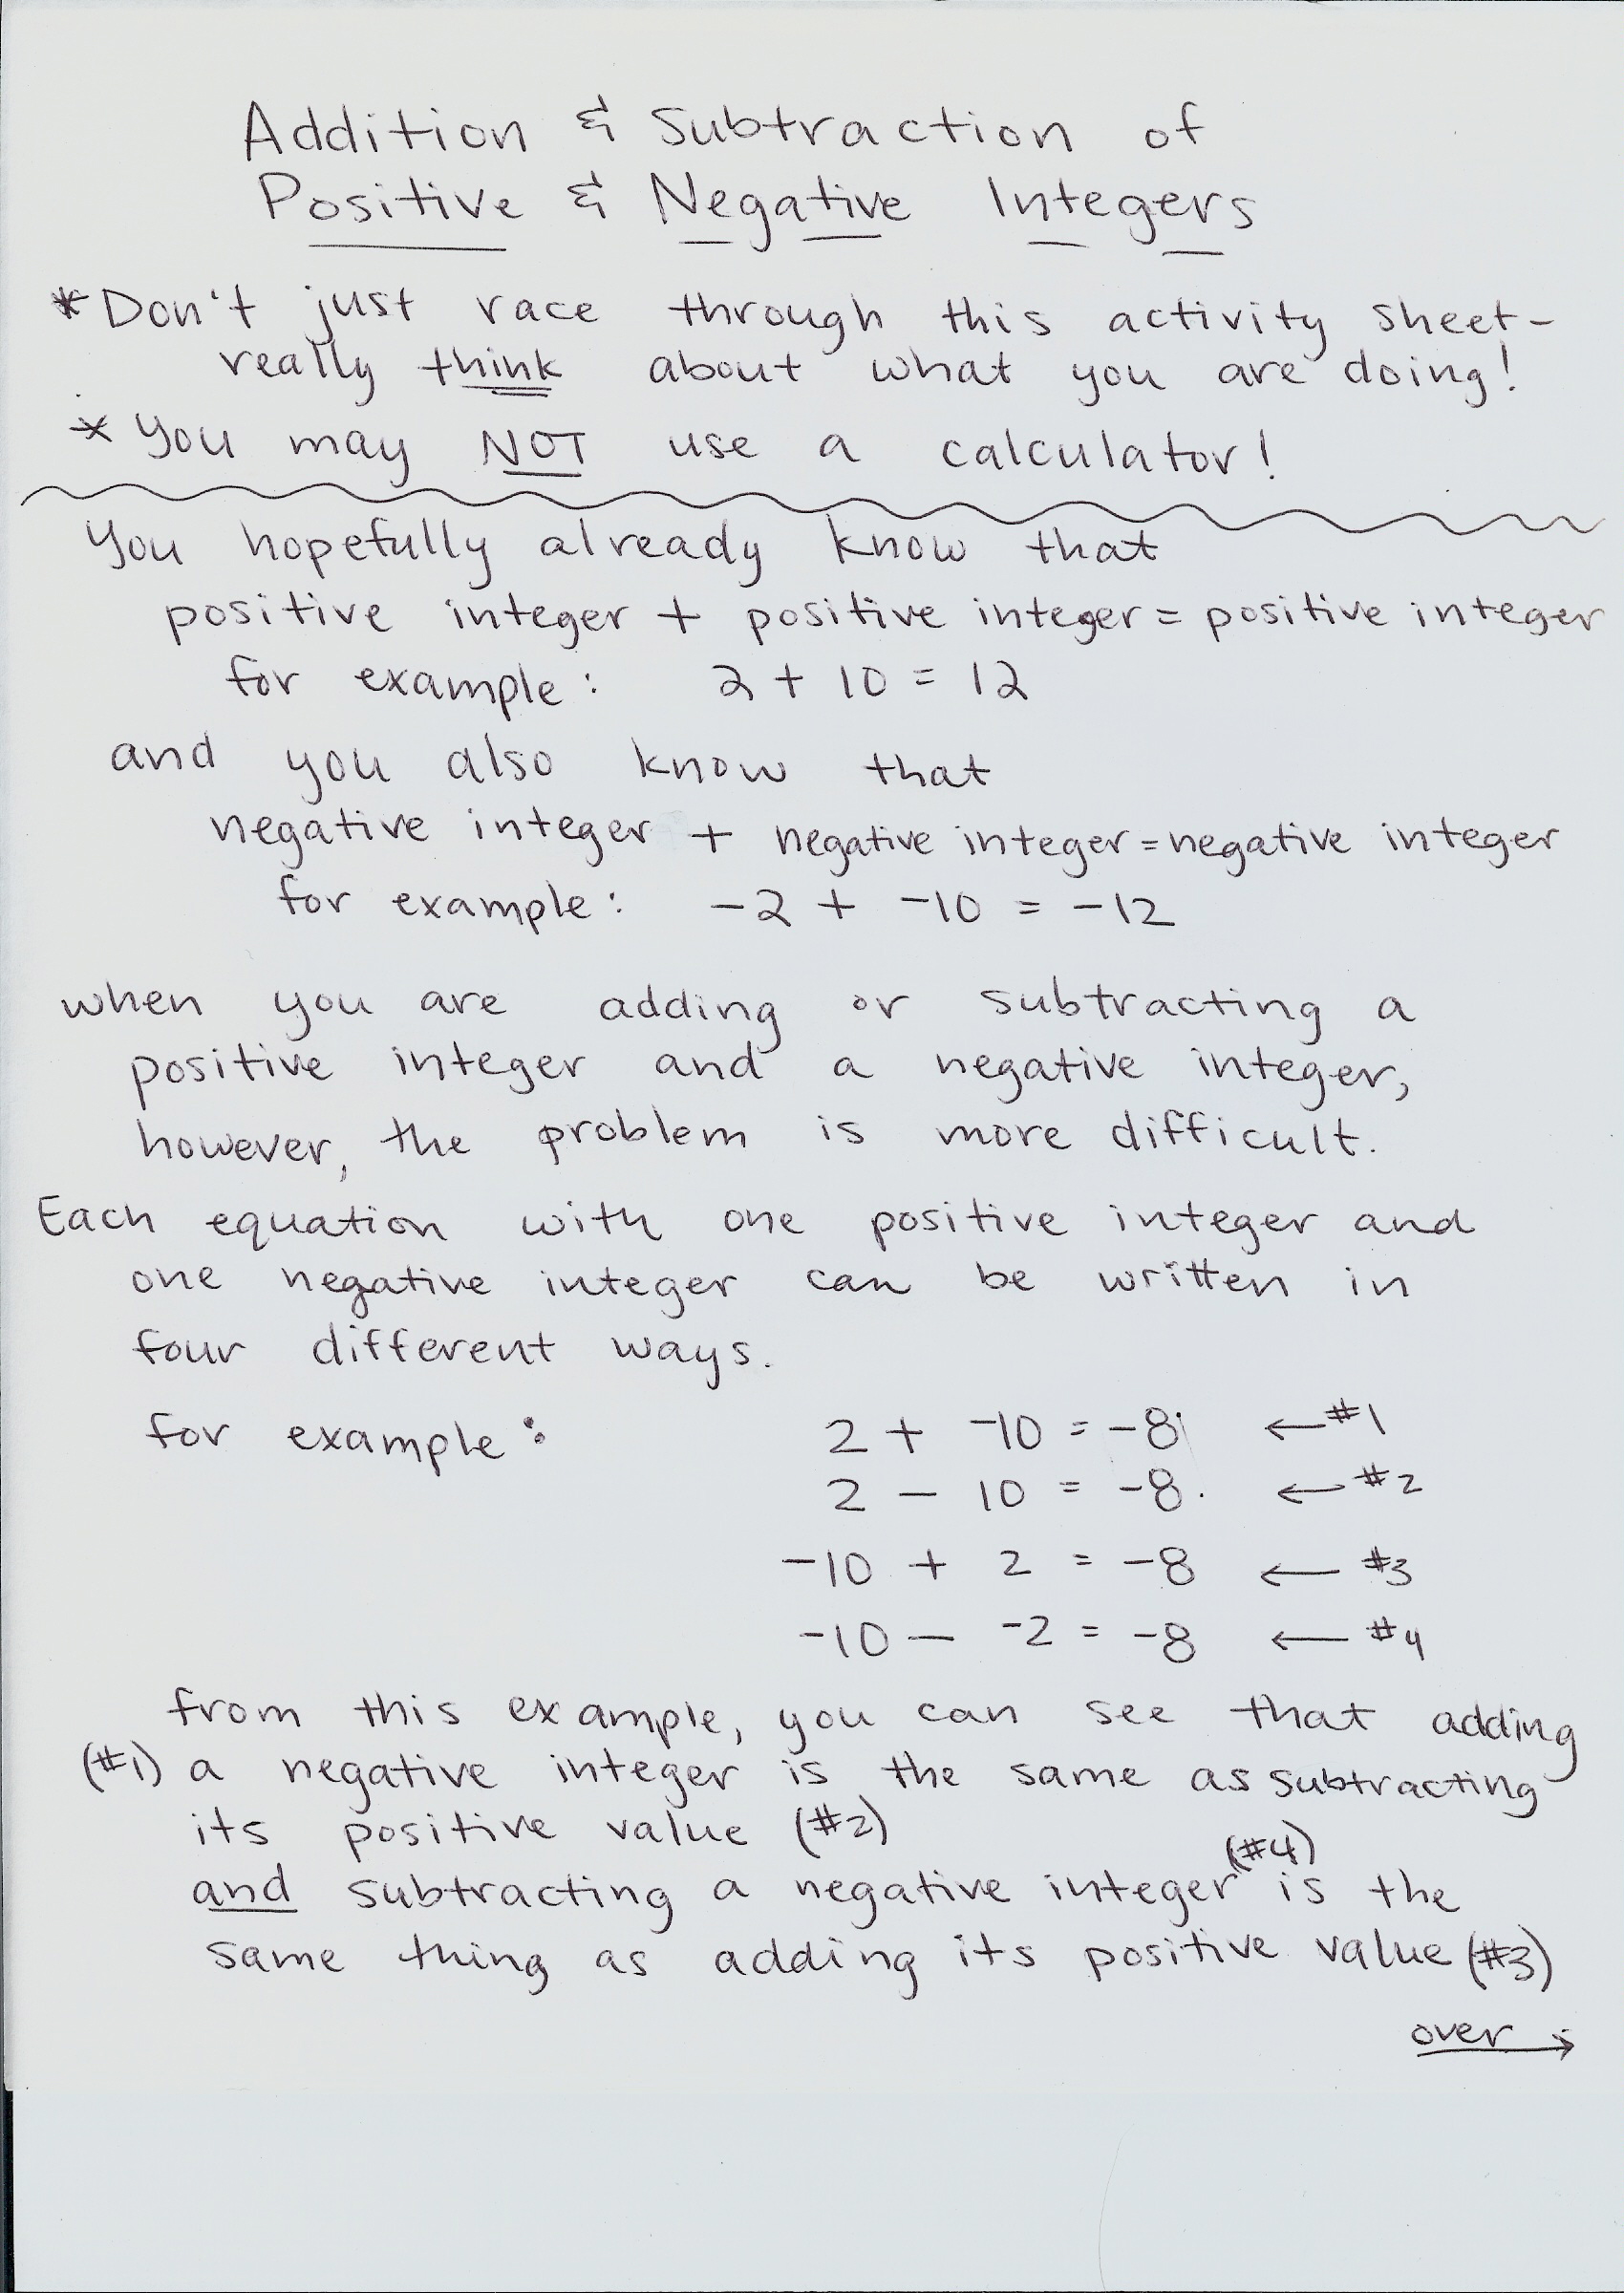 Addition & Subtraction of
Positive & Negative Integers
*Don't just race through this activity sheet-
really think about what you are doing!
* You may NOT use a calculator!
You hopefully already know that
positive integer + positive integer = positive integer
for example: 2 + 10 = 12
and you also know that
negative integer + negative integer = negative integer
for example: -2 + -10 = -12
when you are adding or subtracting a
positive integer and a negative integer,
however, the problem is more difficult.
Each equation with one positive integer and
one negative integer can be written in
four different ways.
for example: 2 + -10 = -8 ← #1
2 - 10 = -8. ← #2
-10 + 2 = -8 ← #3
-10 - -2 = -8 ← #4
from this example, you can see that adding
(#1) a negative integer is the same as subtracting
its positive value (#2)
(#4)
and subtracting a negative integer is the
same thing as adding its positive value (#3)
over →